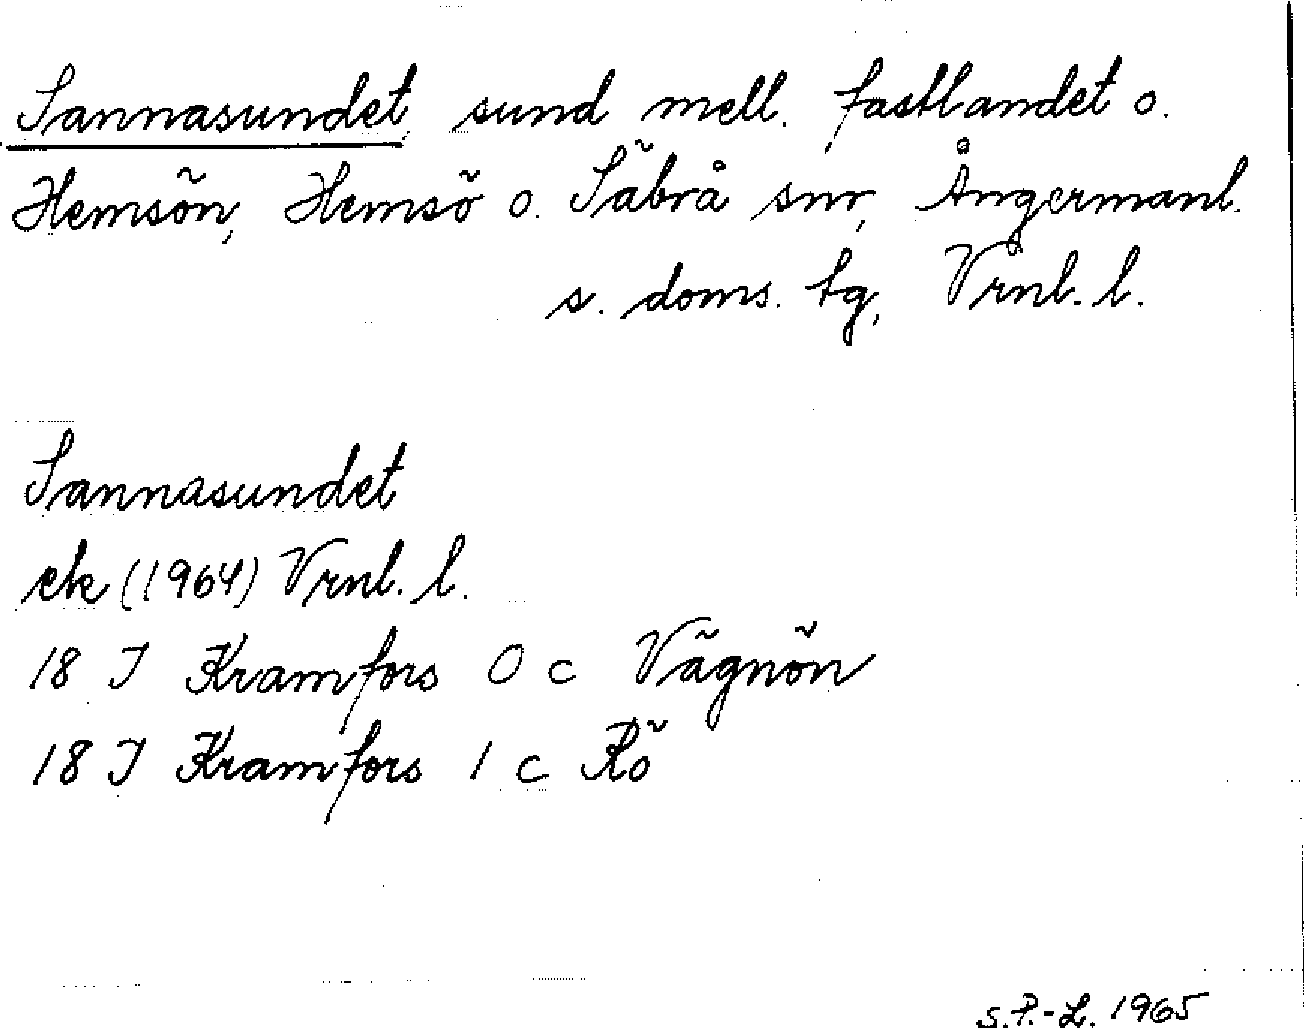 Sannasundet, sund mell. fastlandet o.
Hemsön, Hemsö o. Säbrå snr, Ångermanl.
s. doms. tg, Vrnl. l.
Sannasundet
ek (1964) Vrnl. l.
18 I Kramfors 0 c Vägnön
18 I Kramfors 1 c Rö
S.P.-L. 1965